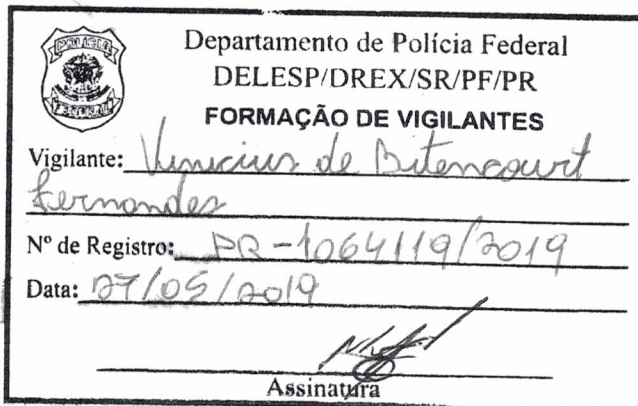 POLÍCIA
FEDERAL
Departamento de Polícia Federal
DELESP/DREX/SR/PF/PR
FORMAÇÃO DE VIGILANTES
Vigilante: Vinicius de Bitencourt
Fernandes
Nº de Registro: PR-1064119/2019
Data: 27/05/2019
Assinatura